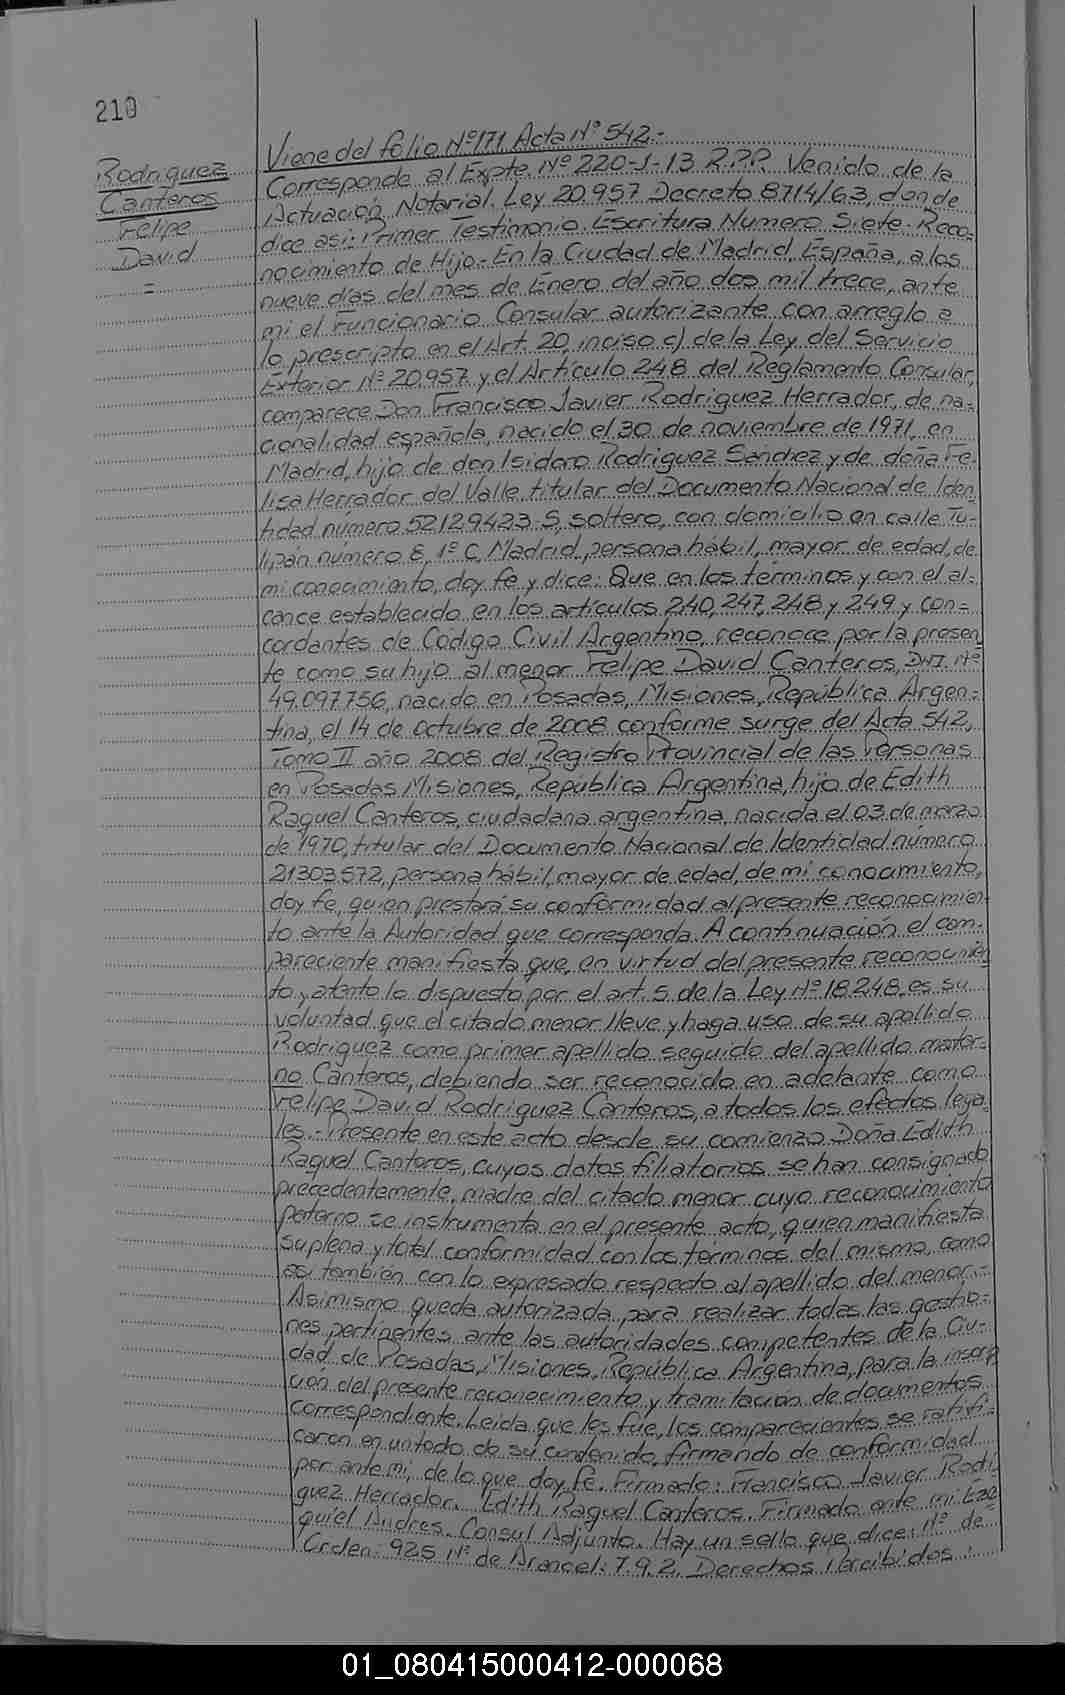 210
Rodriguez
Canteros
Felipe
David
=
Viene del folio Nº 171 Acta Nº 542.-
Corresponde al Expte Nº 220-J-13 R.P.P. Venido de la
Actuación Notarial. Ley 20.957 Decreto 8714/63, donde
dice así: Primer Testimonio. Escritura Numero Siete. Reco-
nocimiento de Hijo.- En la Ciudad de Madrid, España, a los
nueve días del mes de Enero del año dos mil trece, ante
mi el Funcionario Consular autorizante con arreglo a
lo prescripto en el Art. 20, inciso c) de la Ley del Servicio
Exterior Nº 20957 y el Artículo 248 del Reglamento Consular,
comparece Don Francisco Javier Rodriguez Herrador, de na-
cionalidad española, nacido el 30 de noviembre de 1971, en
Madrid, hijo de don Isidoro Rodriguez Sanchez y de doña Fe-
lisa Herrador del Valle titular del Documento Nacional de Iden
tidad número 52129423-S, soltero, con domicilio en calle Tu-
lipán número 8, 1º C, Madrid, persona hábil, mayor de edad, de
mi conocimiento, doy fe y dice: Que en los términos y con el al-
cance establecido en los artículos 240, 247, 248 y 249 y con-
cordantes de Código Civil Argentino, reconoce por la presen
te como su hijo al menor Felipe David Canteros, DNI Nº
49.097.756, nacido en Posadas, Misiones, República Argen-
tina, el 14 de octubre de 2008 conforme surge del Acta 542,
Tomo II año 2008 del Registro Provincial de las Personas
en Posadas Misiones, República Argentina, hijo de Edith
Raquel Canteros, ciudadana argentina, nacida el 03 de marzo
de 1970, titular del Documento Nacional de Identidad número
21303572, persona hábil, mayor de edad, de mi conocimiento,
doy fe, quien prestará su conformidad al presente reconocimien
to ante la Autoridad que corresponda. A continuación el com-
pareciente manifiesta que, en virtud del presente reconocimien
to y atento lo dispuesto por el art. 5 de la Ley Nº 18.248, es su
voluntad que el citado menor lleve y haga uso de su apellido
Rodriguez como primer apellido seguido del apellido mater-
no Canteros, debiendo ser reconocido en adelante como
Felipe David Rodriguez Canteros, a todos los efectos lega-
les.- Presente en este acto desde su comienzo Doña Edith
Raquel Canteros, cuyos datos filiatorios se han consignado
precedentemente, madre del citado menor cuyo reconocimiento
paterno se instrumenta en el presente acto, quien manifiesta
su plena y total conformidad con los terminos del mismo, como
asi también con lo expresado respecto al apellido del menor.-
Asimismo queda autorizada para realizar todas las gestio-
nes pertinentes ante las autoridades competentes de la Ciu-
dad de Posadas, Misiones, República Argentina, para la inscrip
ción del presente reconocimiento y tramitación de documentos
correspondiente. Leida que les fue, los comparecientes se ratifi-
caron en un todo de su contenido, firmando de conformidad
por ante mi, de lo que doy fe. Firmado: Francisco Javier Rodri
guez Herrador. Edith Raquel Canteros. Firmado ante mi Eze
quiel Andres. Consul Adjunto. Hay un sello que dice: Nº de
Orden: 925 Nº de Arancel: 7.9.2. Derechos Percibidos:
01_080415000412-000068